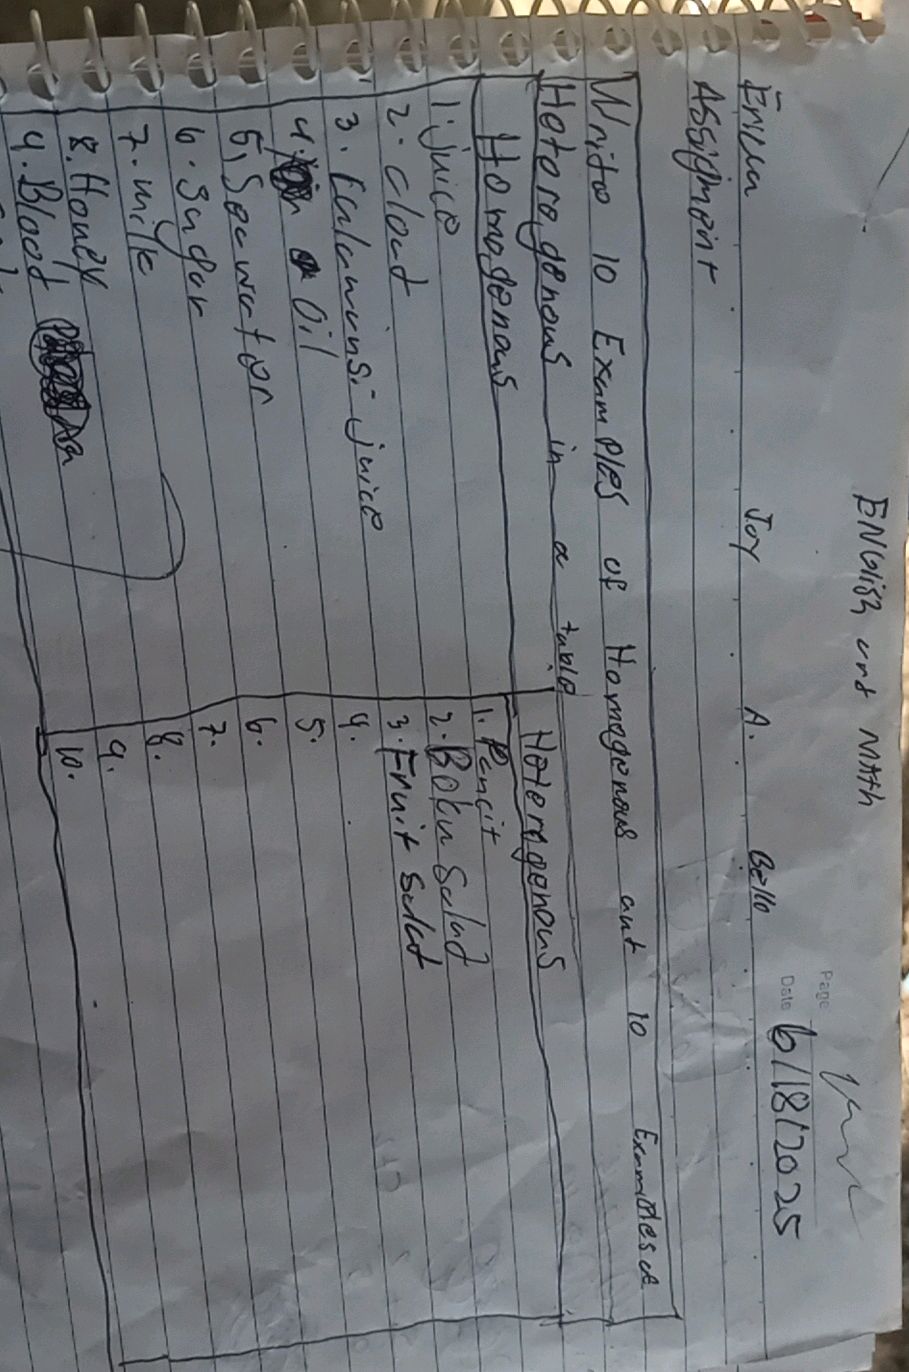 ENGlish and MAth
Page
Date 6/18/2025
Ericca Joy A. Bello
Assignment
Write 10 ExamPles of Homogenous and 10 Examples of
Heterogenous in a table
Homogenous
1. juice
2. cloud
3. Calamansi juice
4. Oil
5. Seawater
6. Sugar
7. milk
8. Honey
9. Blood
Heterogenous
1. Pancit
2. Salad
3. Fruit salad
4.
5.
6.
7.
8.
9.
10.